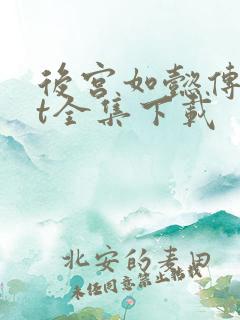 後宮如懿傳
t全集下載
北安的麦田
未经同意禁止转载